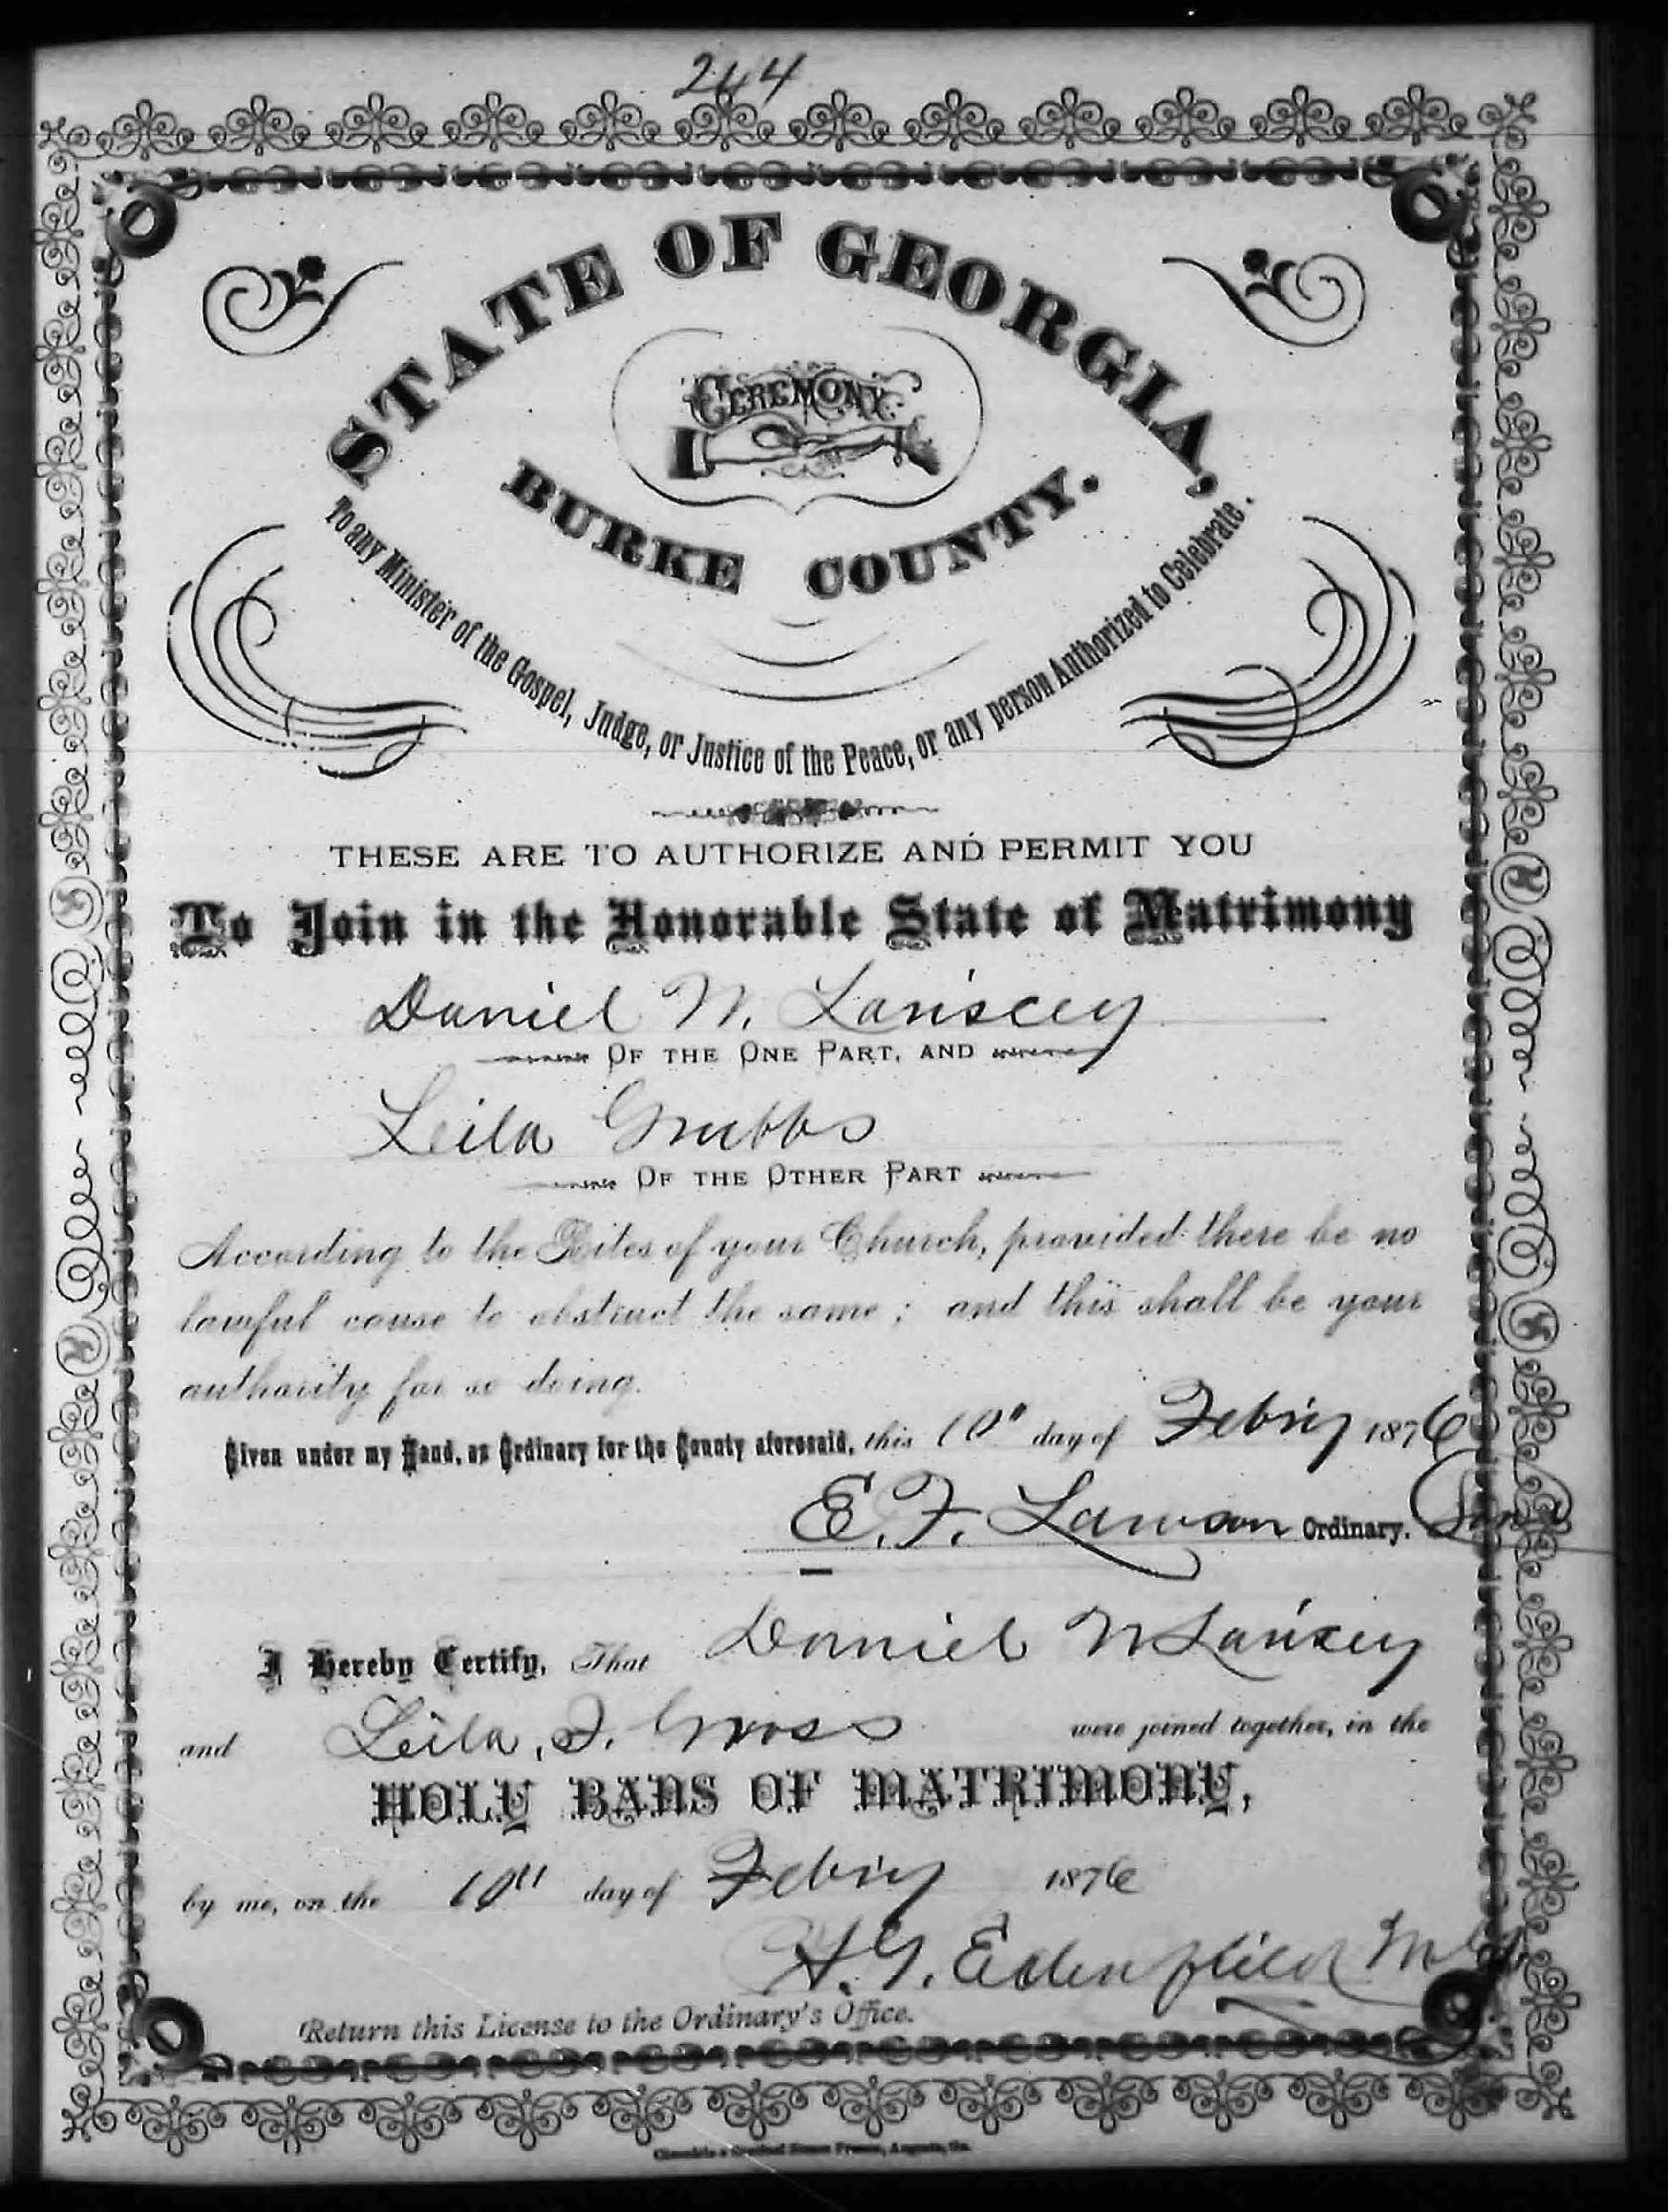 264
STATE OF GEORGIA,
CEREMONY
BURKE COUNTY.
To any Minister of the Gospel, Judge, or Justice of the Peace, or any person Authorized to Celebrate.
THESE ARE TO AUTHORIZE AND PERMIT YOU
To Join in the Honorable State of Matrimony
Daniel N. Lariscey
OF THE ONE PART, AND
Leila Grubbs
OF THE OTHER PART
According to the Rites of your Church, provided there be no
lawful cause to obstruct the same; and this shall be your
authority for so doing.
Given under my Hand, as Ordinary for the County aforesaid, this 10" day of Febry 1876
E. F. Lawson Ordinary.
I Hereby Certify, That Daniel N Lariscy
and Leila, I. Gross were joined together, in the
HOLY BANS OF MATRIMONY,
by me, on the 10th day of Febry 1876
H. G. Edenfield M G
Return this License to the Ordinary's Office.
Chronicle & Sentinel Steam Presses, Augusta, Ga.